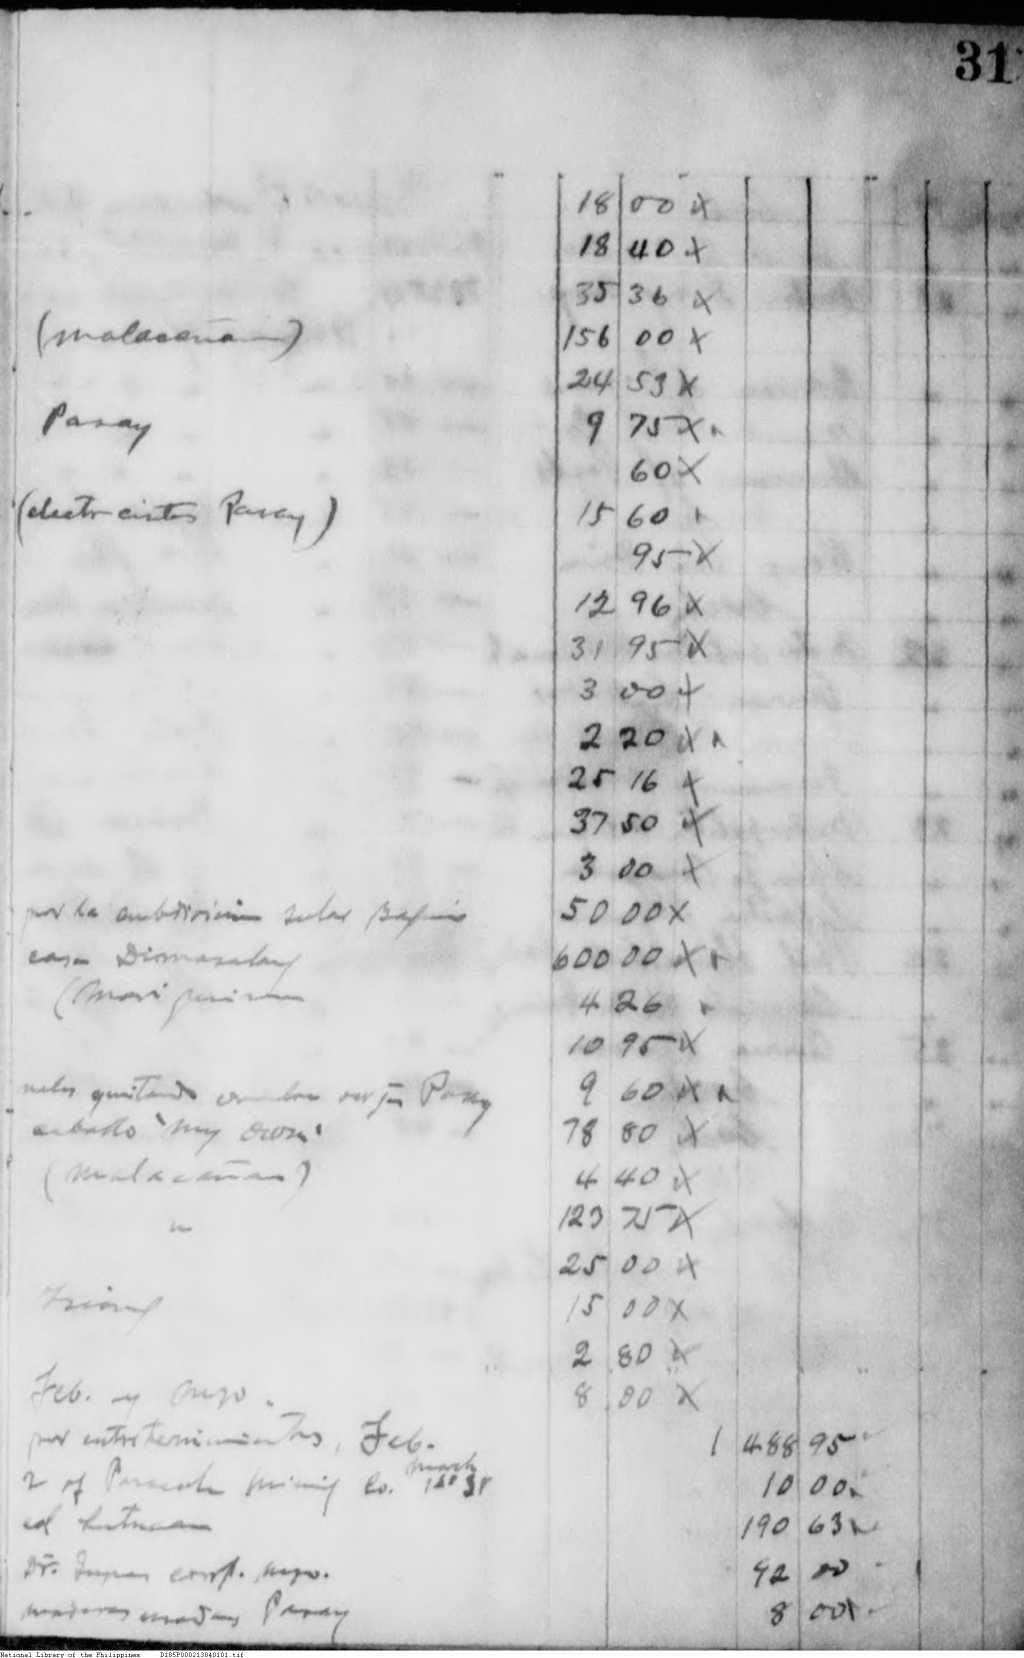 31
18 00 x
18 40 x
35 36 x
(Malacañan) 156 00 x
24 53 x
Pasay 9 75 x
60 x
(electricistas Pasay) 15 60
95 x
12 96 x
31 95 x
3 00 x
2 20 x
25 16 x
37 50 x
3 00 x
por la subdivision solar Baguio 50 00 x
casa Dimasalang 600 00 x
(Mariquina 4 26
10 95 x
quitando Pasay 9 60 x
caballo "My Own" 78 80 x
(Malacañan) 4 40 x
" 123 75 x
25 00 x
15 00 x
2 80 x
Feb. y Mzo. 8 00 x
por entretenimientos, Feb. 1 488 95
2 of Paracale Mining Co. March 10 00
190 63
Dr. corrp. Mzo. 42 00
maderas usadas Pasay 8 00 x
National Library of the Philippines D185P000213840101.tif